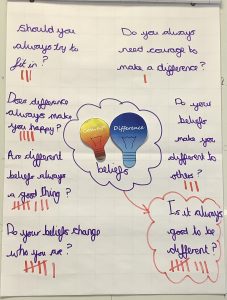 Should you
always try to
fit in?
Do you always
need courage to
make a difference?
Does difference
always make
you happy?
Difference
beliefs
Do your
beliefs
make you
different to
others?
Are different
beliefs always
a good thing?
Do your beliefs change
who you are?
Is it always
good to be
different?